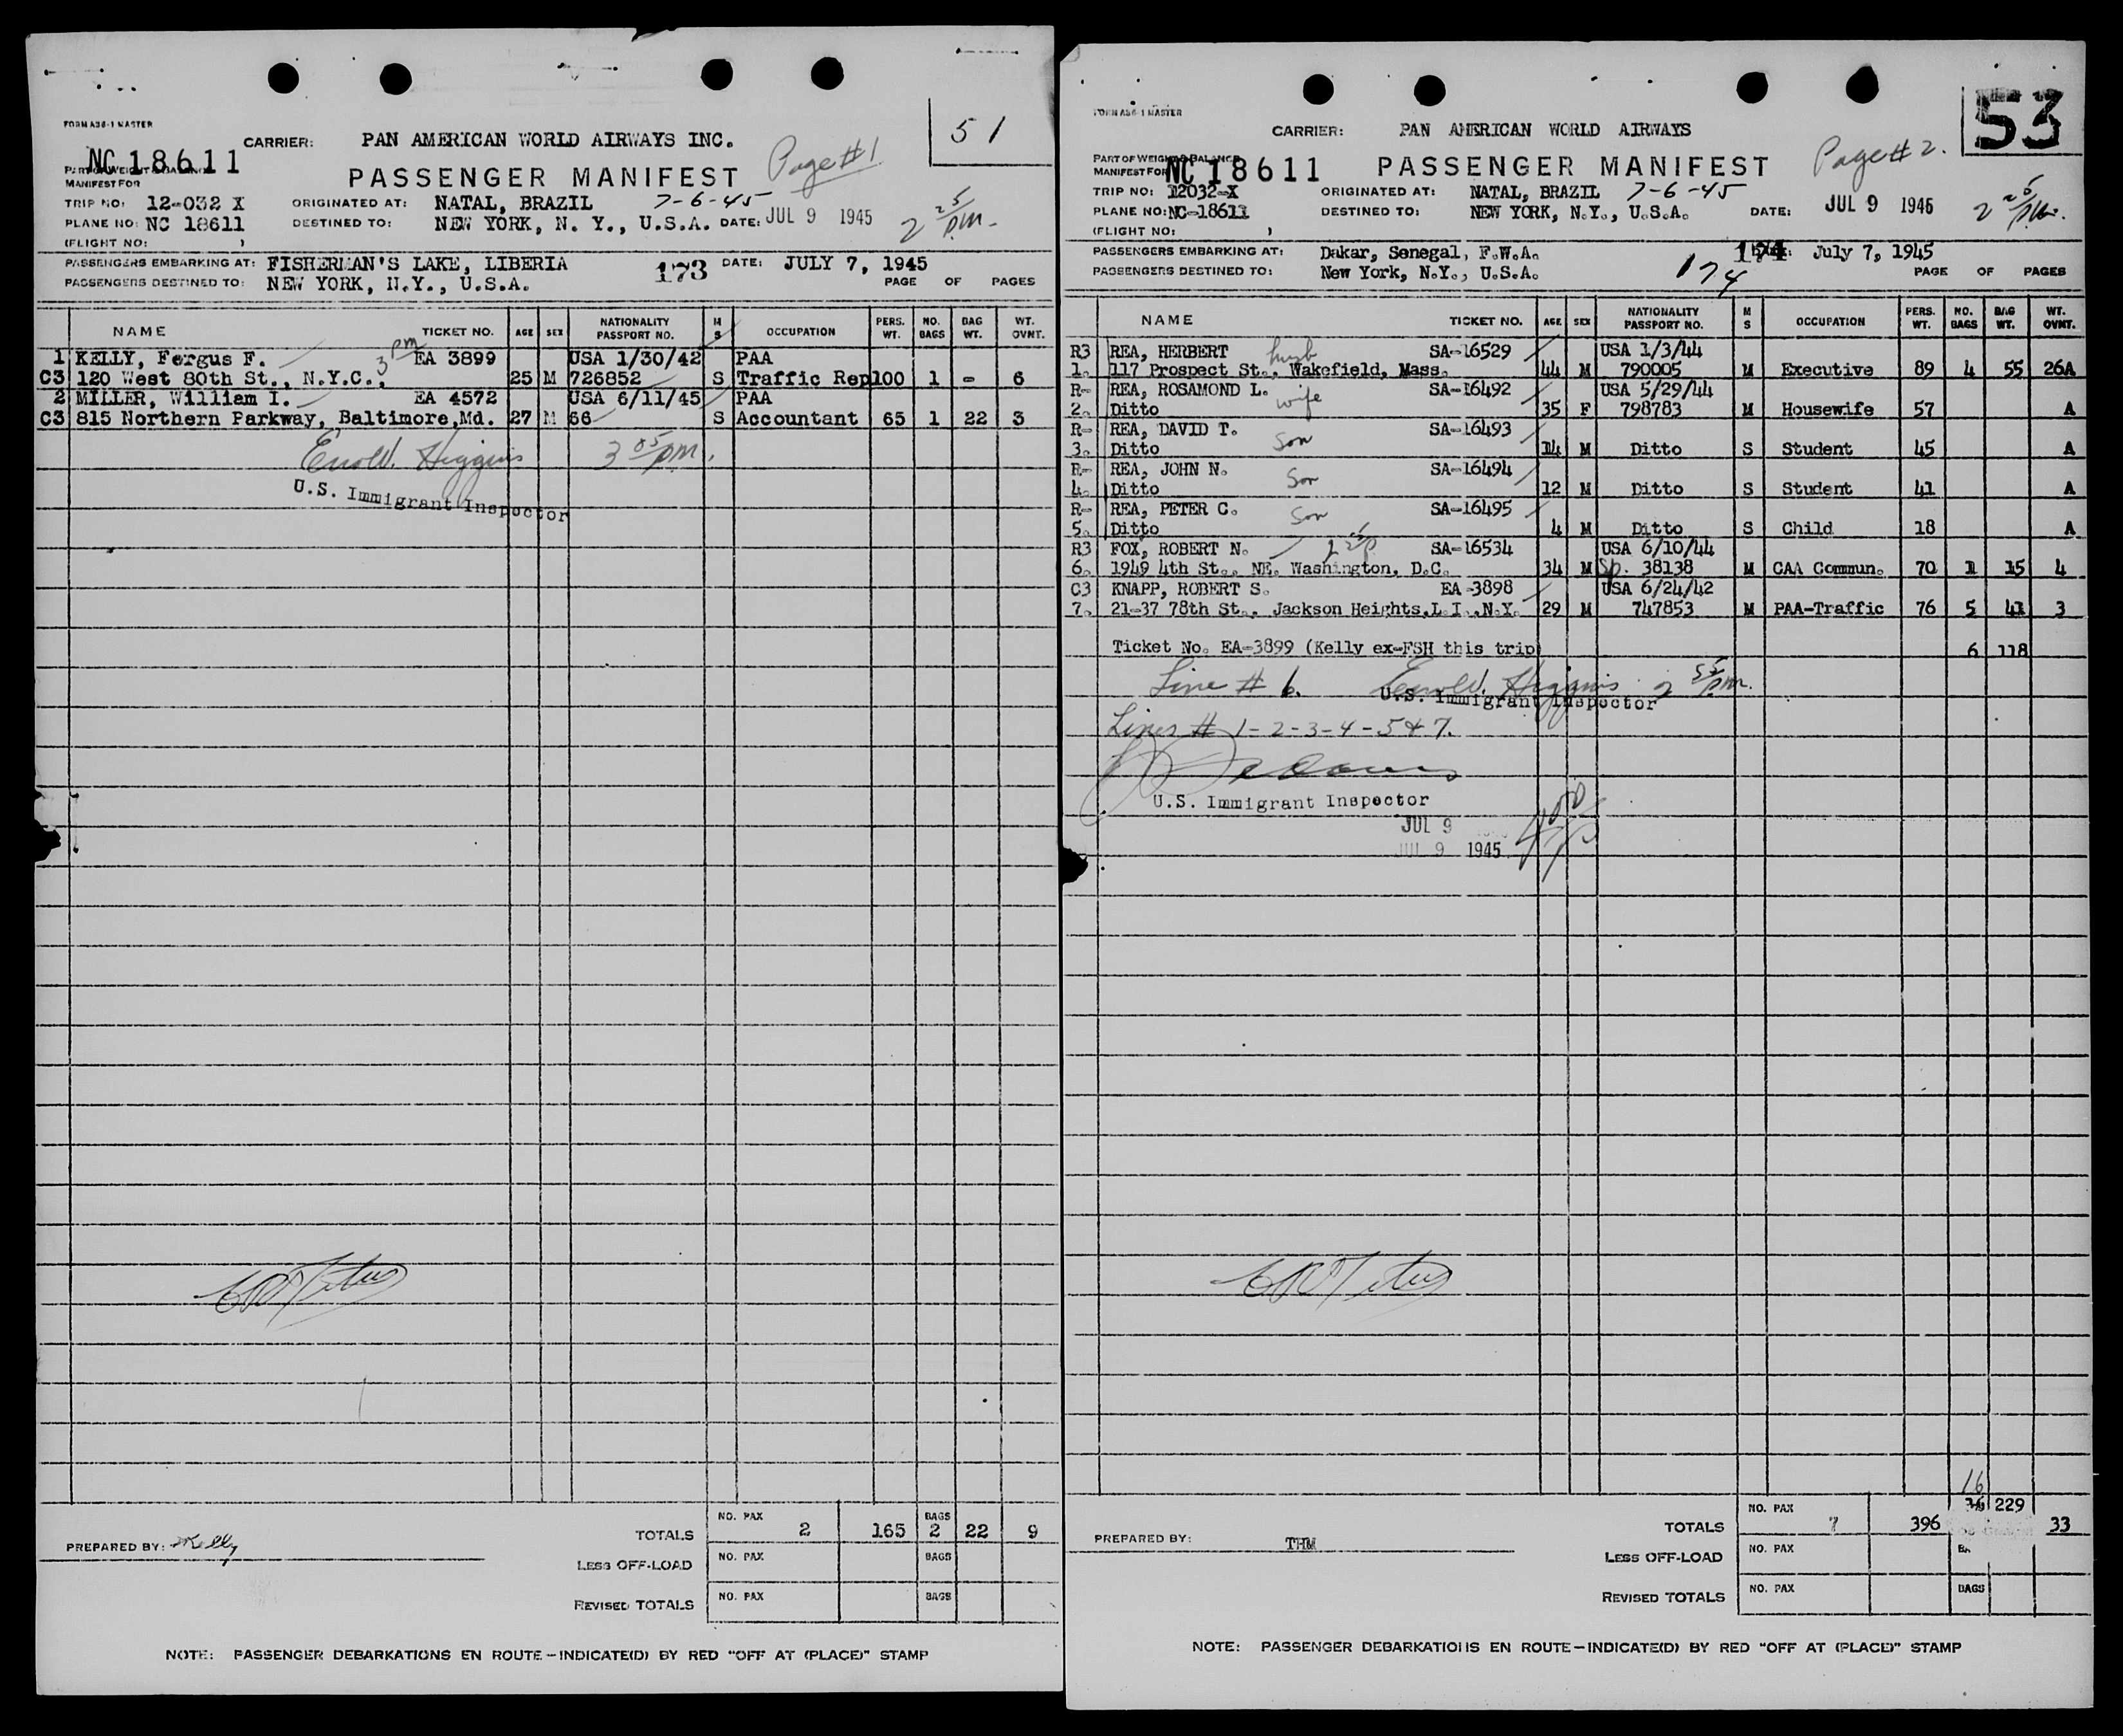 51
FORM A36-1 MASTER
CARRIER: PAN AMERICAN WORLD AIRWAYS INC.
Page #1
NC 18611
PART OF WEIGHT & BALANCE
MANIFEST FOR
PASSENGER MANIFEST
TRIP NO: 12-032 X ORIGINATED AT: NATAL, BRAZIL 7-6-45
PLANE NO: NC 18611 DESTINED TO: NEW YORK, N. Y., U.S.A. DATE: JUL 9 1945 2 25 PM.
(FLIGHT NO: )
PASSENGERS EMBARKING AT: FISHERMAN'S LAKE, LIBERIA 173 DATE: JULY 7, 1945
PASSENGERS DESTINED TO: NEW YORK, N.Y., U.S.A. PAGE OF PAGES
NAME TICKET NO. AGE SEX NATIONALITY PASSPORT NO. M S OCCUPATION PERS. WT. NO. BAGS BAG WT. WT. OVNT.
1 KELLY, Fergus F. 3 PM EA 3899 USA 1/30/42 PAA
C3 120 West 80th St., N.Y.C., 25 M 726852 S Traffic Rep 100 1 - 6
2 MILLER, William I. EA 4572 USA 6/11/45 PAA
C3 815 Northern Parkway, Baltimore,Md. 27 M 66 S Accountant 65 1 22 3
Higgins 3 05 PM.
U.S. Immigrant Inspector
TOTALS NO. PAX 2 165 BAGS 2 22 9
PREPARED BY: Kelly
LESS OFF-LOAD NO. PAX BAGS
REVISED TOTALS NO. PAX BAGS
NOTE: PASSENGER DEBARKATIONS EN ROUTE - INDICATE(D) BY RED "OFF AT (PLACE)" STAMP
53
FORM A36-1 MASTER
CARRIER: PAN AMERICAN WORLD AIRWAYS
Page #2.
PART OF WEIGHT & BALANCE
MANIFEST FOR NC 18611 PASSENGER MANIFEST
TRIP NO: 12032-X ORIGINATED AT: NATAL, BRAZIL 7-6-45
PLANE NO: NC-18611 DESTINED TO: NEW YORK, N.Y., U.S.A. DATE: JUL 9 1945 2 25 PM.
(FLIGHT NO: )
PASSENGERS EMBARKING AT: Dakar, Senegal, F.W.A. 174 July 7, 1945
PASSENGERS DESTINED TO: New York, N.Y., U.S.A. 174 PAGE OF PAGES
NAME TICKET NO. AGE SEX NATIONALITY PASSPORT NO. M S OCCUPATION PERS. WT. NO. BAGS BAG WT. WT. OVNT.
R3 REA, HERBERT husb SA-16529 USA 1/3/44
1. 117 Prospect St., Wakefield, Mass. 44 M 790005 M Executive 89 4 55 26A
R- REA, ROSAMOND L. wife SA-16492 USA 5/29/44
2. Ditto 35 F 798783 M Housewife 57 A
R- REA, DAVID T. Son SA-16493
3. Ditto 14 M Ditto S Student 45 A
R- REA, JOHN N. Son SA-16494
4. Ditto 12 M Ditto S Student 41 A
R- REA, PETER C. Son SA-16495
5. Ditto 4 M Ditto S Child 18 A
R3 FOX, ROBERT N. SA-16534 USA 6/10/44
6. 1949 4th St., NE. Washington, D.C. 34 M Sp. 38138 M CAA Commun. 70 1 15 4
C3 KNAPP, ROBERT S. EA-3898 USA 6/24/42
7. 21-37 78th St., Jackson Heights,L.I.,N.Y. 29 M 747853 M PAA-Traffic 76 5 41 3
Ticket No. EA-3899 (Kelly ex-FSH this trip) 6 118
Line # 6. Higgins 2 55 PM.
U.S. Immigrant Inspector
Lines # 1-2-3-4-5 & 7.
U.S. Immigrant Inspector
JUL 9
JUL 9 1945
16
TOTALS NO. PAX 7 396 229 33
PREPARED BY: THM
LESS OFF-LOAD NO. PAX
REVISED TOTALS NO. PAX BAGS
NOTE: PASSENGER DEBARKATIONS EN ROUTE - INDICATE(D) BY RED "OFF AT (PLACE)" STAMP